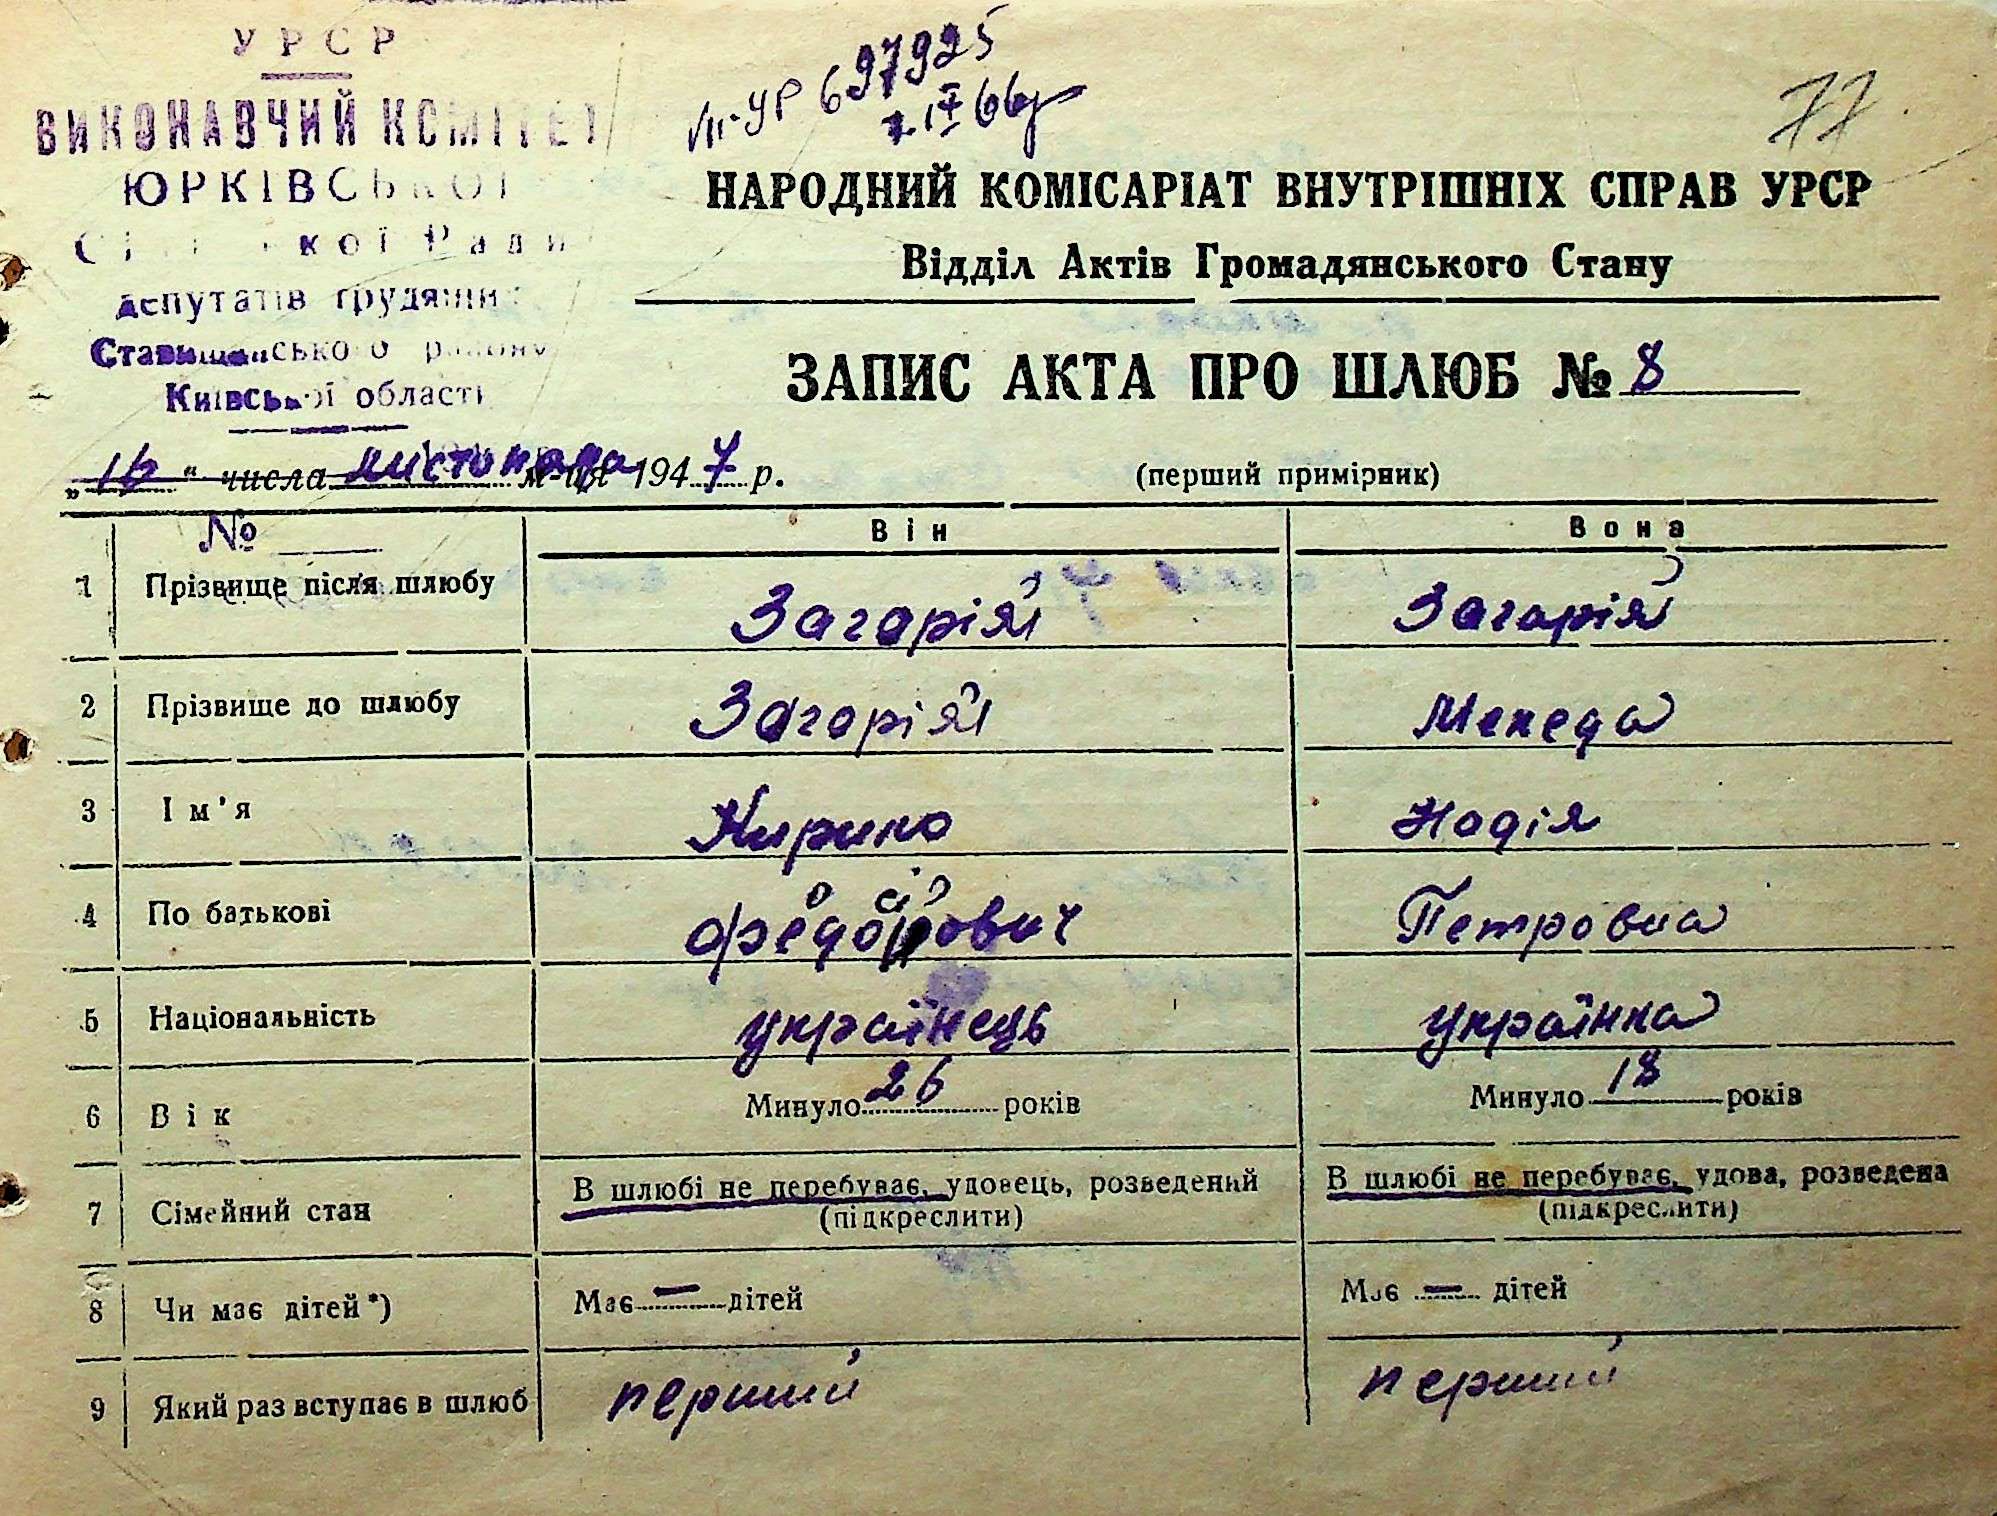 УРСР
ВИКОНАВЧИЙ КОМІТЕТ
ЮРКІВСЬКОЇ
Сільської Ради
депутатів трудящих
Ставищанського району
Київської області
УР 697925
66р
77
НАРОДНИЙ КОМІСАРІАТ ВНУТРІШНІХ СПРАВ УРСР
Відділ Актів Громадянського Стану
ЗАПИС АКТА ПРО ШЛЮБ № 8
„16“ числа листопада м-ця 1947 р.
(перший примірник)
№
Він Вона
1 Прізвище після шлюбу Загорій Загорій
2 Прізвище до шлюбу Загорій Мекеда
3 Ім'я Кирило Надія
4 По батькові Петровна
5 Національність українець українка
6 Вік Минуло 26 років Минуло 18 років
7 Сімейний стан В шлюбі не перебуває, удовець, розведений В шлюбі не перебуває, удова, розведена
(підкреслити) (підкреслити)
8 Чи має дітей*) Має — дітей Має — дітей
9 Який раз вступає в шлюб перший перший